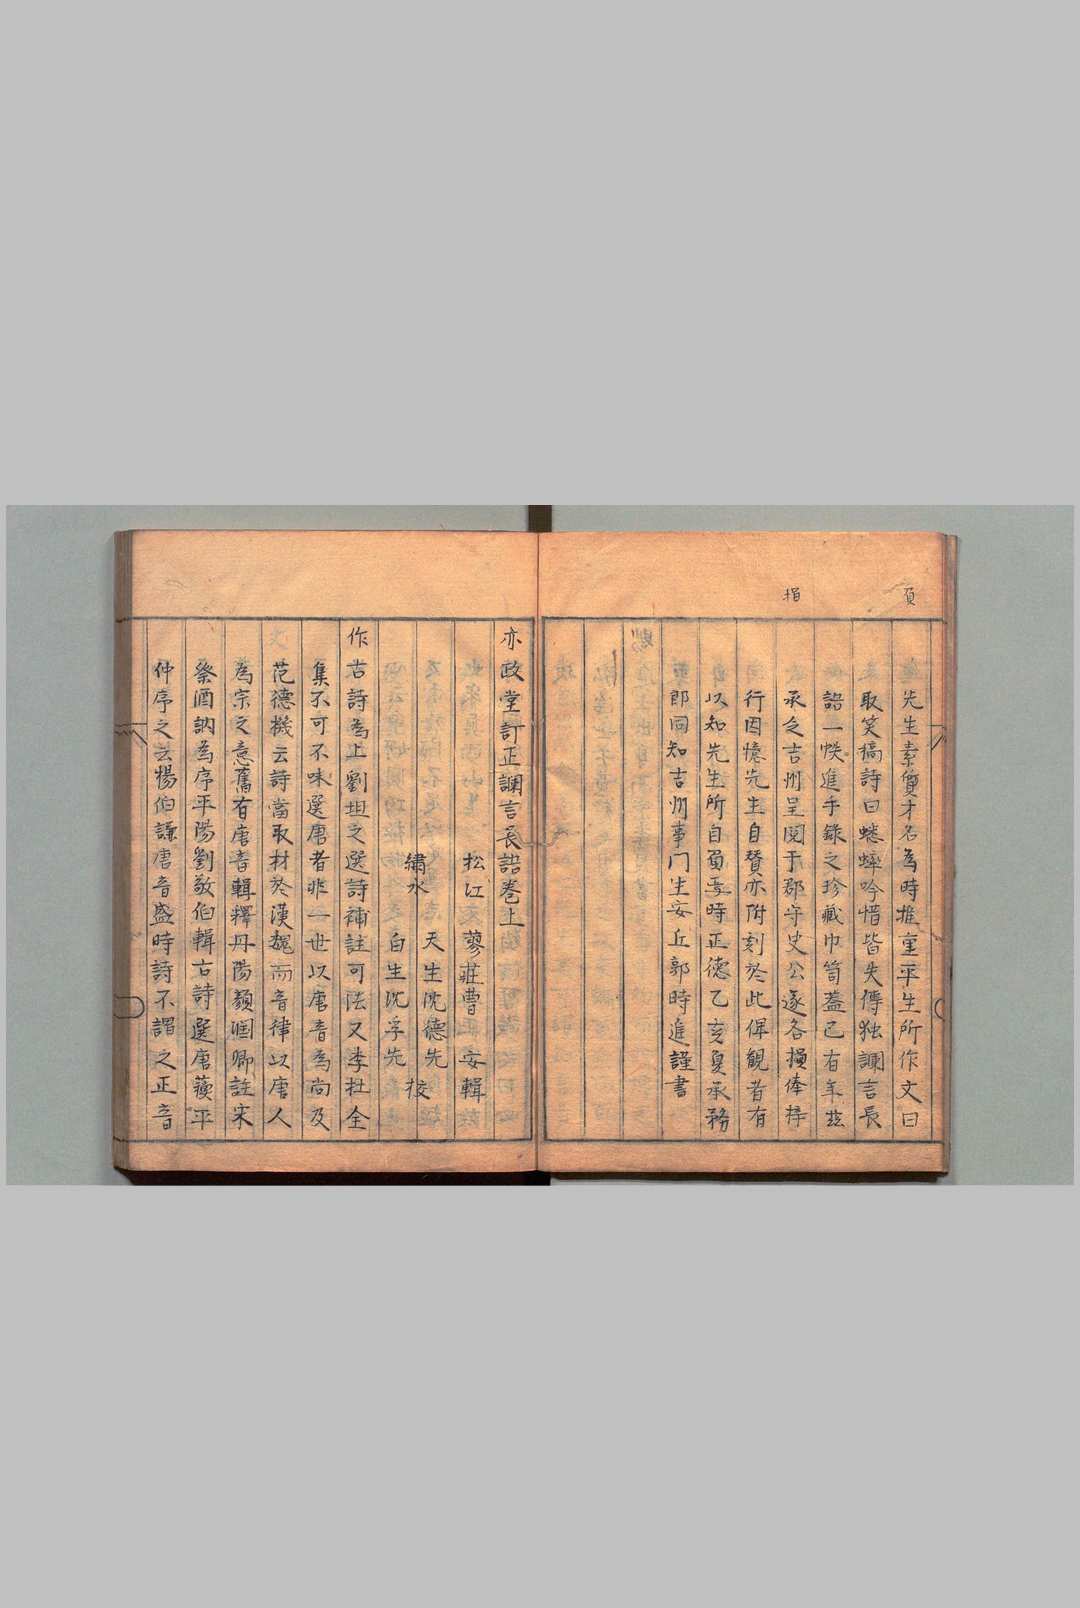 負
揖
先生素負才名為時推重平生所作文曰
取笑稿詩曰蟋蟀吟惜皆失傳独讕言長
語一帙進手錄之珍藏巾笥蓋已有年玆
承乏吉州呈閱于郡守史公遂各損俸梓
行因憶先生自贊亦附刻於此俾觀者有
以知先生所自負焉時正德乙亥夏承務
郎同知吉州事門生安丘郭時進謹書
亦政堂訂正讕言長語卷上
松江 蓼莊曹 安輯
天生沈德先
繡水 校
白生沈孚先
作古詩為上劉坦之選詩補註可法又李杜全
集不可不味選唐者非一世以唐音為尚及
范德機云詩當取材於漢魏而音律以唐人
為宗之意舊有唐音輯釋丹陽顏潤卿註宋
祭酒訥為序平陽劉敬伯輯古詩選唐蘇平
仲序之云楊伯謙唐音盛時詩不謂之正音